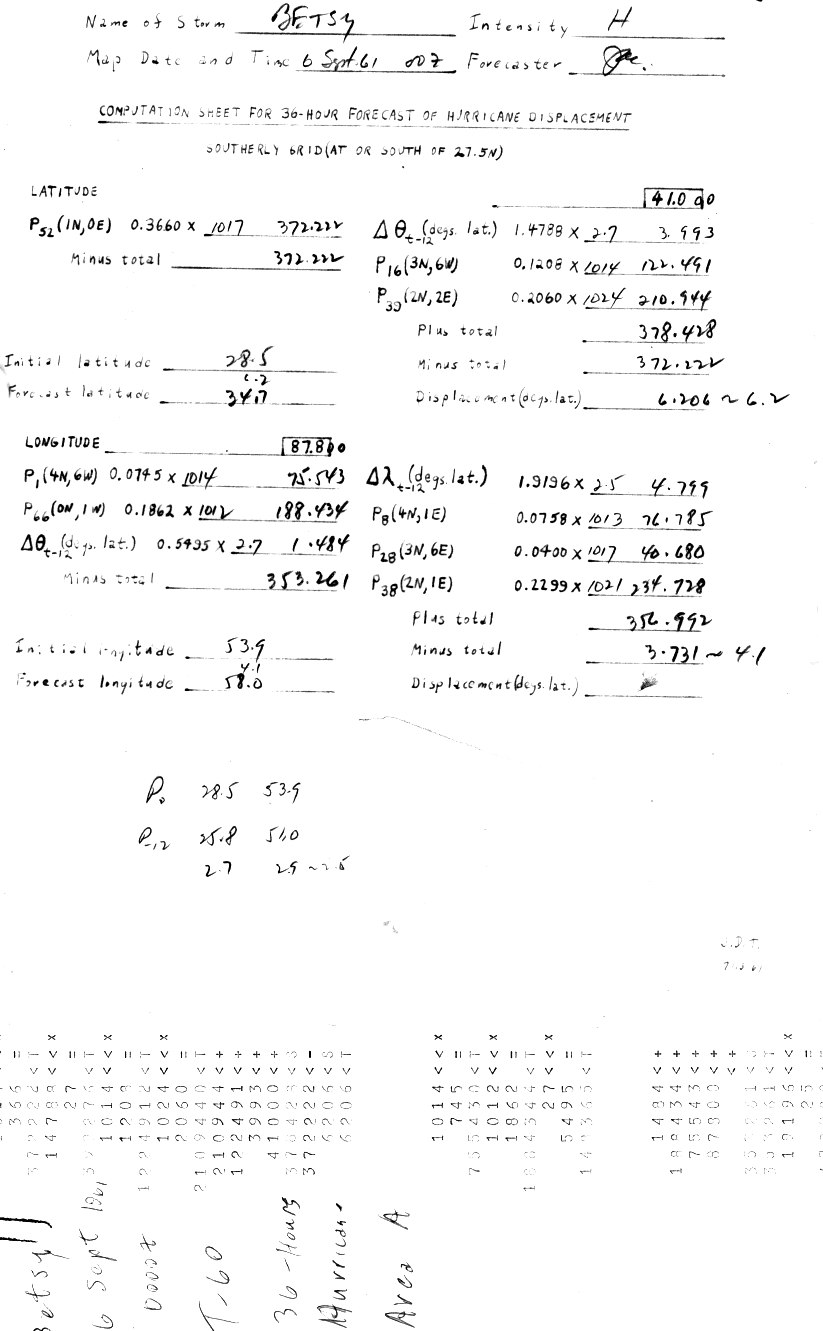 Name of Storm BETSY Intensity H
Map Date and Time 6 Sept. 61 00Z Forecaster
COMPUTATION SHEET FOR 36-HOUR FORECAST OF HURRICANE DISPLACEMENT
SOUTHERLY GRID (AT OR SOUTH OF 27.5N)
LATITUDE
P52(1N,0E) 0.3660 x 1017 372.222
Minus total 372.222
41.000
Δθt-12 (degs. lat.) 1.4788 x 2.7 3.993
P16(3N,6W) 0.1208 x 1014 122.491
P39(2N,2E) 0.2060 x 1024 210.944
Plus total 378.428
Minus total 372.222
Displacement (degs. lat.) 6.206 ~ 6.2
Initial latitude 28.5
6.2
Forecast latitude 34.7
LONGITUDE 87.800
P1(4N,6W) 0.0745 x 1014 75.543
P66(0N,1W) 0.1862 x 1012 188.434
Δθt-12 (degs. lat.) 0.5495 x 2.7 1.484
Minus total 353.261
Δλt-12 (degs. lat.) 1.9196 x 2.5 4.799
P8(4N,1E) 0.0758 x 1013 76.785
P28(3N,6E) 0.0400 x 1017 40.680
P38(2N,1E) 0.2299 x 1021 234.728
Plus total 356.992
Minus total 3.731 ~ 4.1
Displacement (degs. lat.)
Initial longitude 53.9
4.1
Forecast longitude 58.0
P0 28.5 53.9
P-12 25.8 51.0
2.7 2.9 ~ 2.5
J.D.T.
Betsy
6 Sept 1961
0000Z
T-60
36-Hours
Hurricane
Area A
366 =
14788 < x
27 =
1014 < x
1208 =
1224912 < T
1024 < x
2060 =
2109440 < T
210944 < +
122491 < +
3993 < +
41000 < +
378428 < S
372222 < -
6206 < S
6206 < T
1014 < x
745 =
755430 < T
1012 < x
1862 =
1884344 < T
27 < x
5495 =
148365 < T
1484 < +
188434 < +
75543 < +
87800 < +
353261 < S
353261 < T
19196 < x
25 =